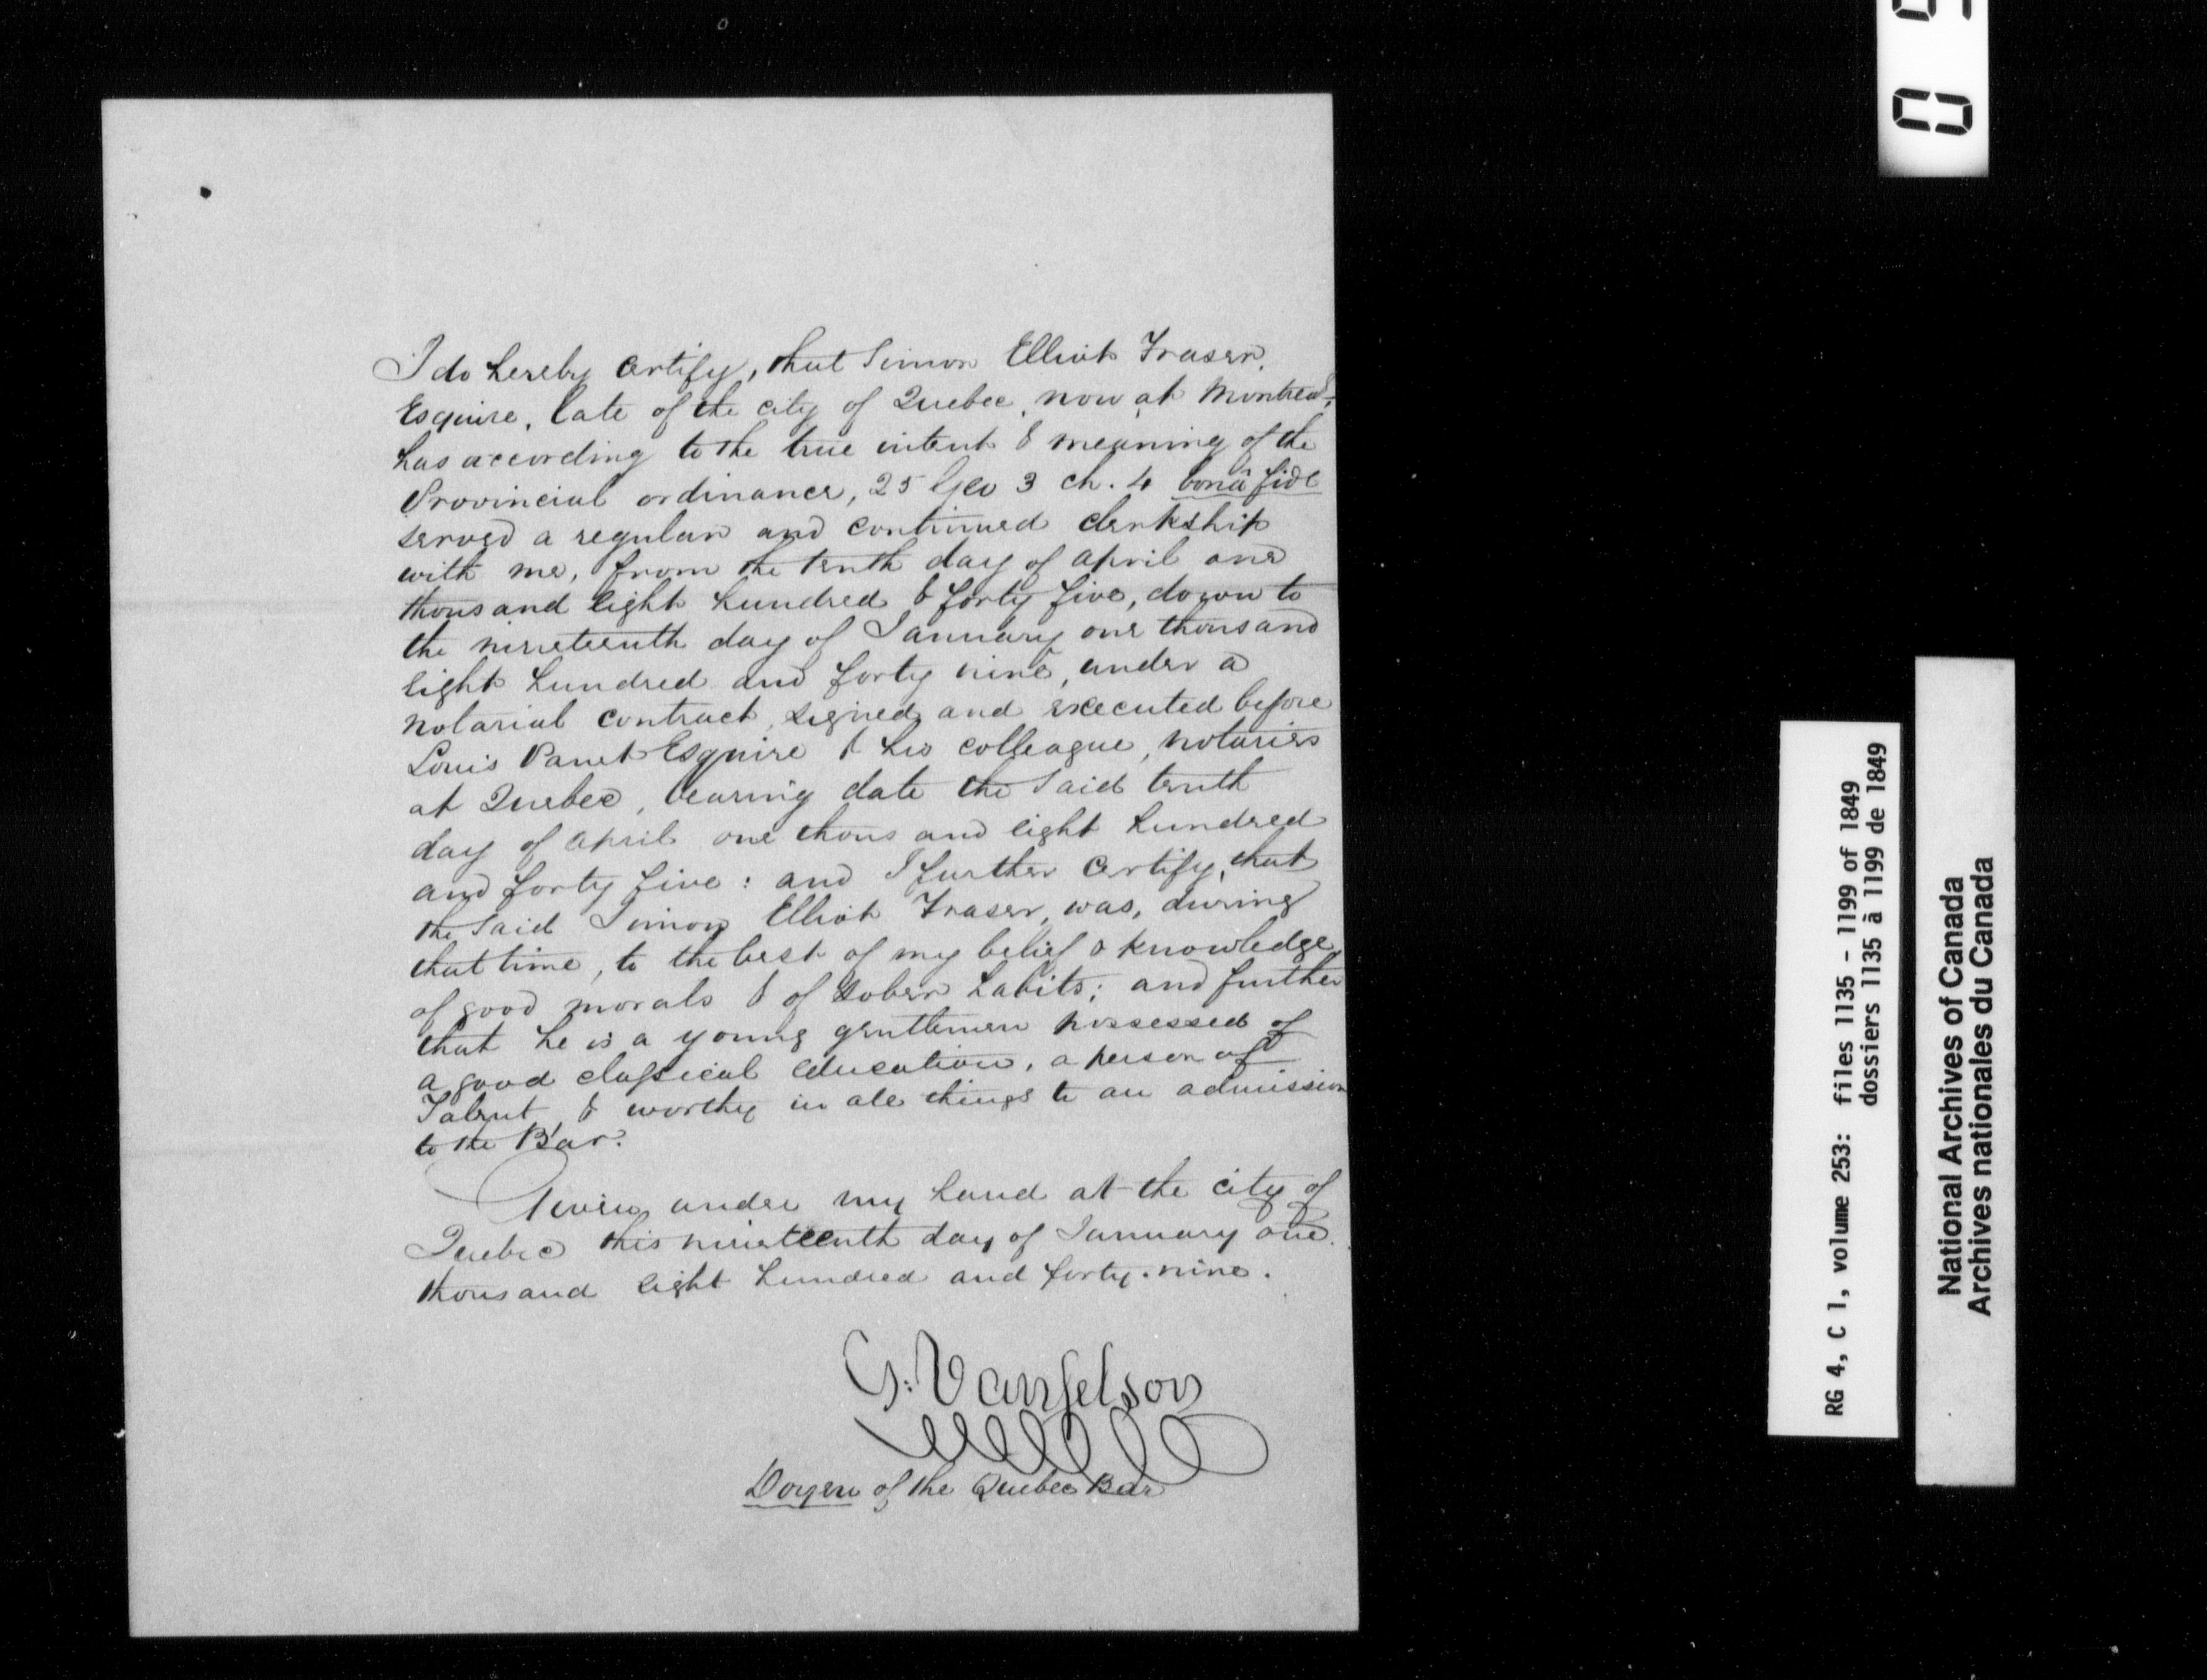 I do hereby certify, that Simon Elliot Fraser,
Esquire, late of the city of Quebec, now at Montreal,
has according to the true intent & meaning of the
Provincial ordinance, 25 Geo 3 ch. 4 bonâ fide
served a regular and continued clerkship
with me, from the tenth day of April one
thousand eight hundred & forty five, down to
the nineteenth day of January one thousand
eight hundred and forty nine, under a
notarial contract, signed and executed before
Louis Panet Esquire & his colleague, notaries
at Quebec, bearing date the said tenth
day of April one thousand eight hundred
and forty five: and I further certify, that
the said Simon Elliot Fraser, was, during
that time, to the best of my belief & knowledge,
of good morals & of sober habits; and further
that he is a young gentlemen possessed of
a good classical education, a person of
Talent, & worthy in all things to an admission
to the Bar.
Given under my hand at the city of
Quebec this nineteenth day of January one
thousand eight hundred and forty-nine.
G. Vanfelson
Doyen of the Quebec Bar
RG 4, C 1, volume 253: files 1135 - 1199 of 1849
dossiers 1135 à 1199 de 1849
National Archives of Canada
Archives nationales du Canada